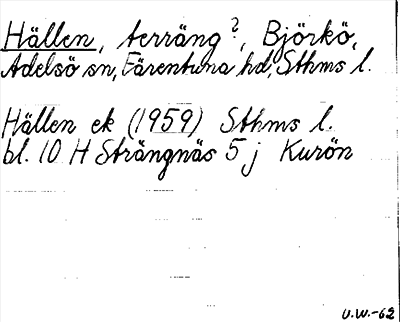 Hällen, terräng?, Björkö,
Adelsö sn, Färentuna hd, Sthms l.
Hällen ek (1959) Sthms l.
bl. 10 H Strängnäs 5 j Kurön
U.W.-62